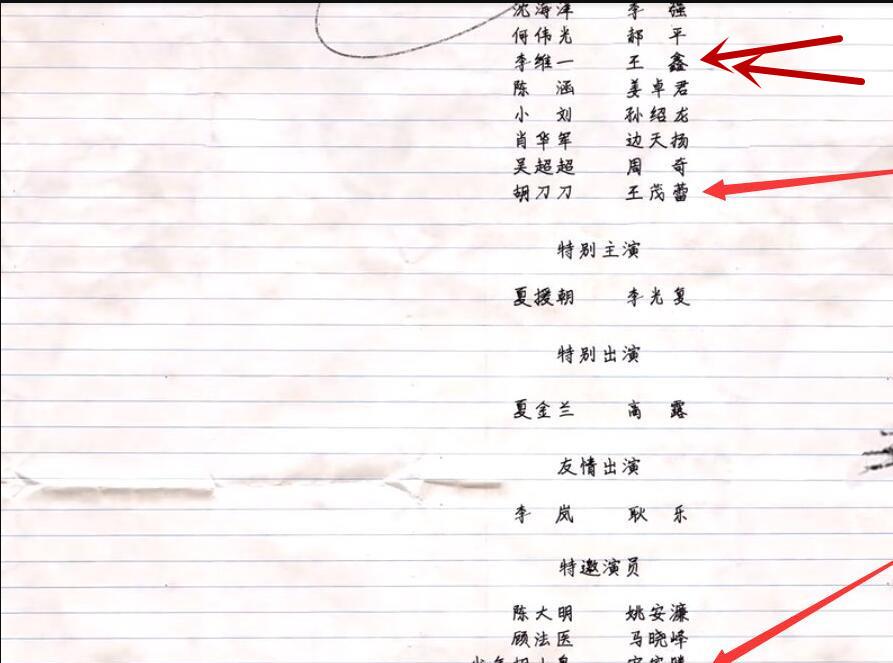 沈海洋 李强
何伟光 郝平
李维一 王鑫
陈涵 姜卓君
小刘 孙绍龙
肖华军 边天扬
吴超超 周奇
胡刀刀 王茂蕾
特别主演
夏援朝 李光复
特别出演
夏金兰 高露
友情出演
李岚 耿乐
特邀演员
陈大明 姚安濂
顾法医 马晓峰